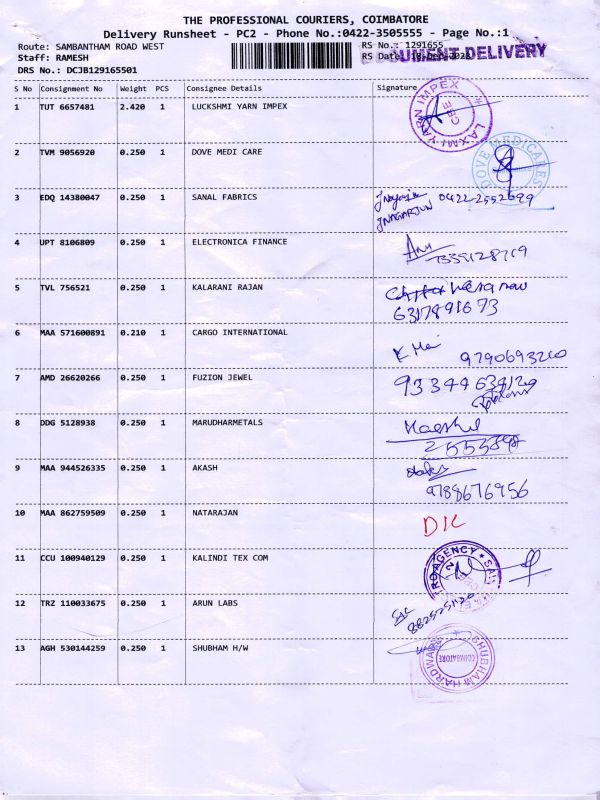 THE PROFESSIONAL COURIERS, COIMBATORE
Delivery Runsheet - PC2 - Phone No.:0422-3505555 - Page No.:1
Route: SAMBANTHAM ROAD WEST
RS No.: 1291655
Staff: RAMESH
RS Date:
DOCUMENT DELIVERY
DRS No.: DCJB129165501
S No Consignment No Weight PCS Consignee Details Signature
1 TUT 6657481 2.420 1 LUCKSHMI YARN IMPEX
LAXMI YARN IMPEX CBE
2 TVM 9056920 0.250 1 DOVE MEDI CARE
DOVE MEDICARES
3 EDQ 14380047 0.250 1 SANAL FABRICS
0422-2552699
JNAGARJUN
4 UPT 8106809 0.250 1 ELECTRONICA FINANCE
5 TVL 756521 0.250 1 KALARANI RAJAN
6317891673
6 MAA 571600891 0.210 1 CARGO INTERNATIONAL
9790693200
7 AMD 26620266 0.250 1 FUZION JEWEL
8 DDG 5128938 0.250 1 MARUDHARMETALS
9 MAA 944526335 0.250 1 AKASH
9788676956
10 MAA 862759509 0.250 1 NATARAJAN
DIL
11 CCU 100940129 0.250 1 KALINDI TEX COM
AGENCY
12 TRZ 110033675 0.250 1 ARUN LABS
13 AGH 530144259 0.250 1 SHUBHAM H/W
SHUBHAM HARDWARE COIMBATORE